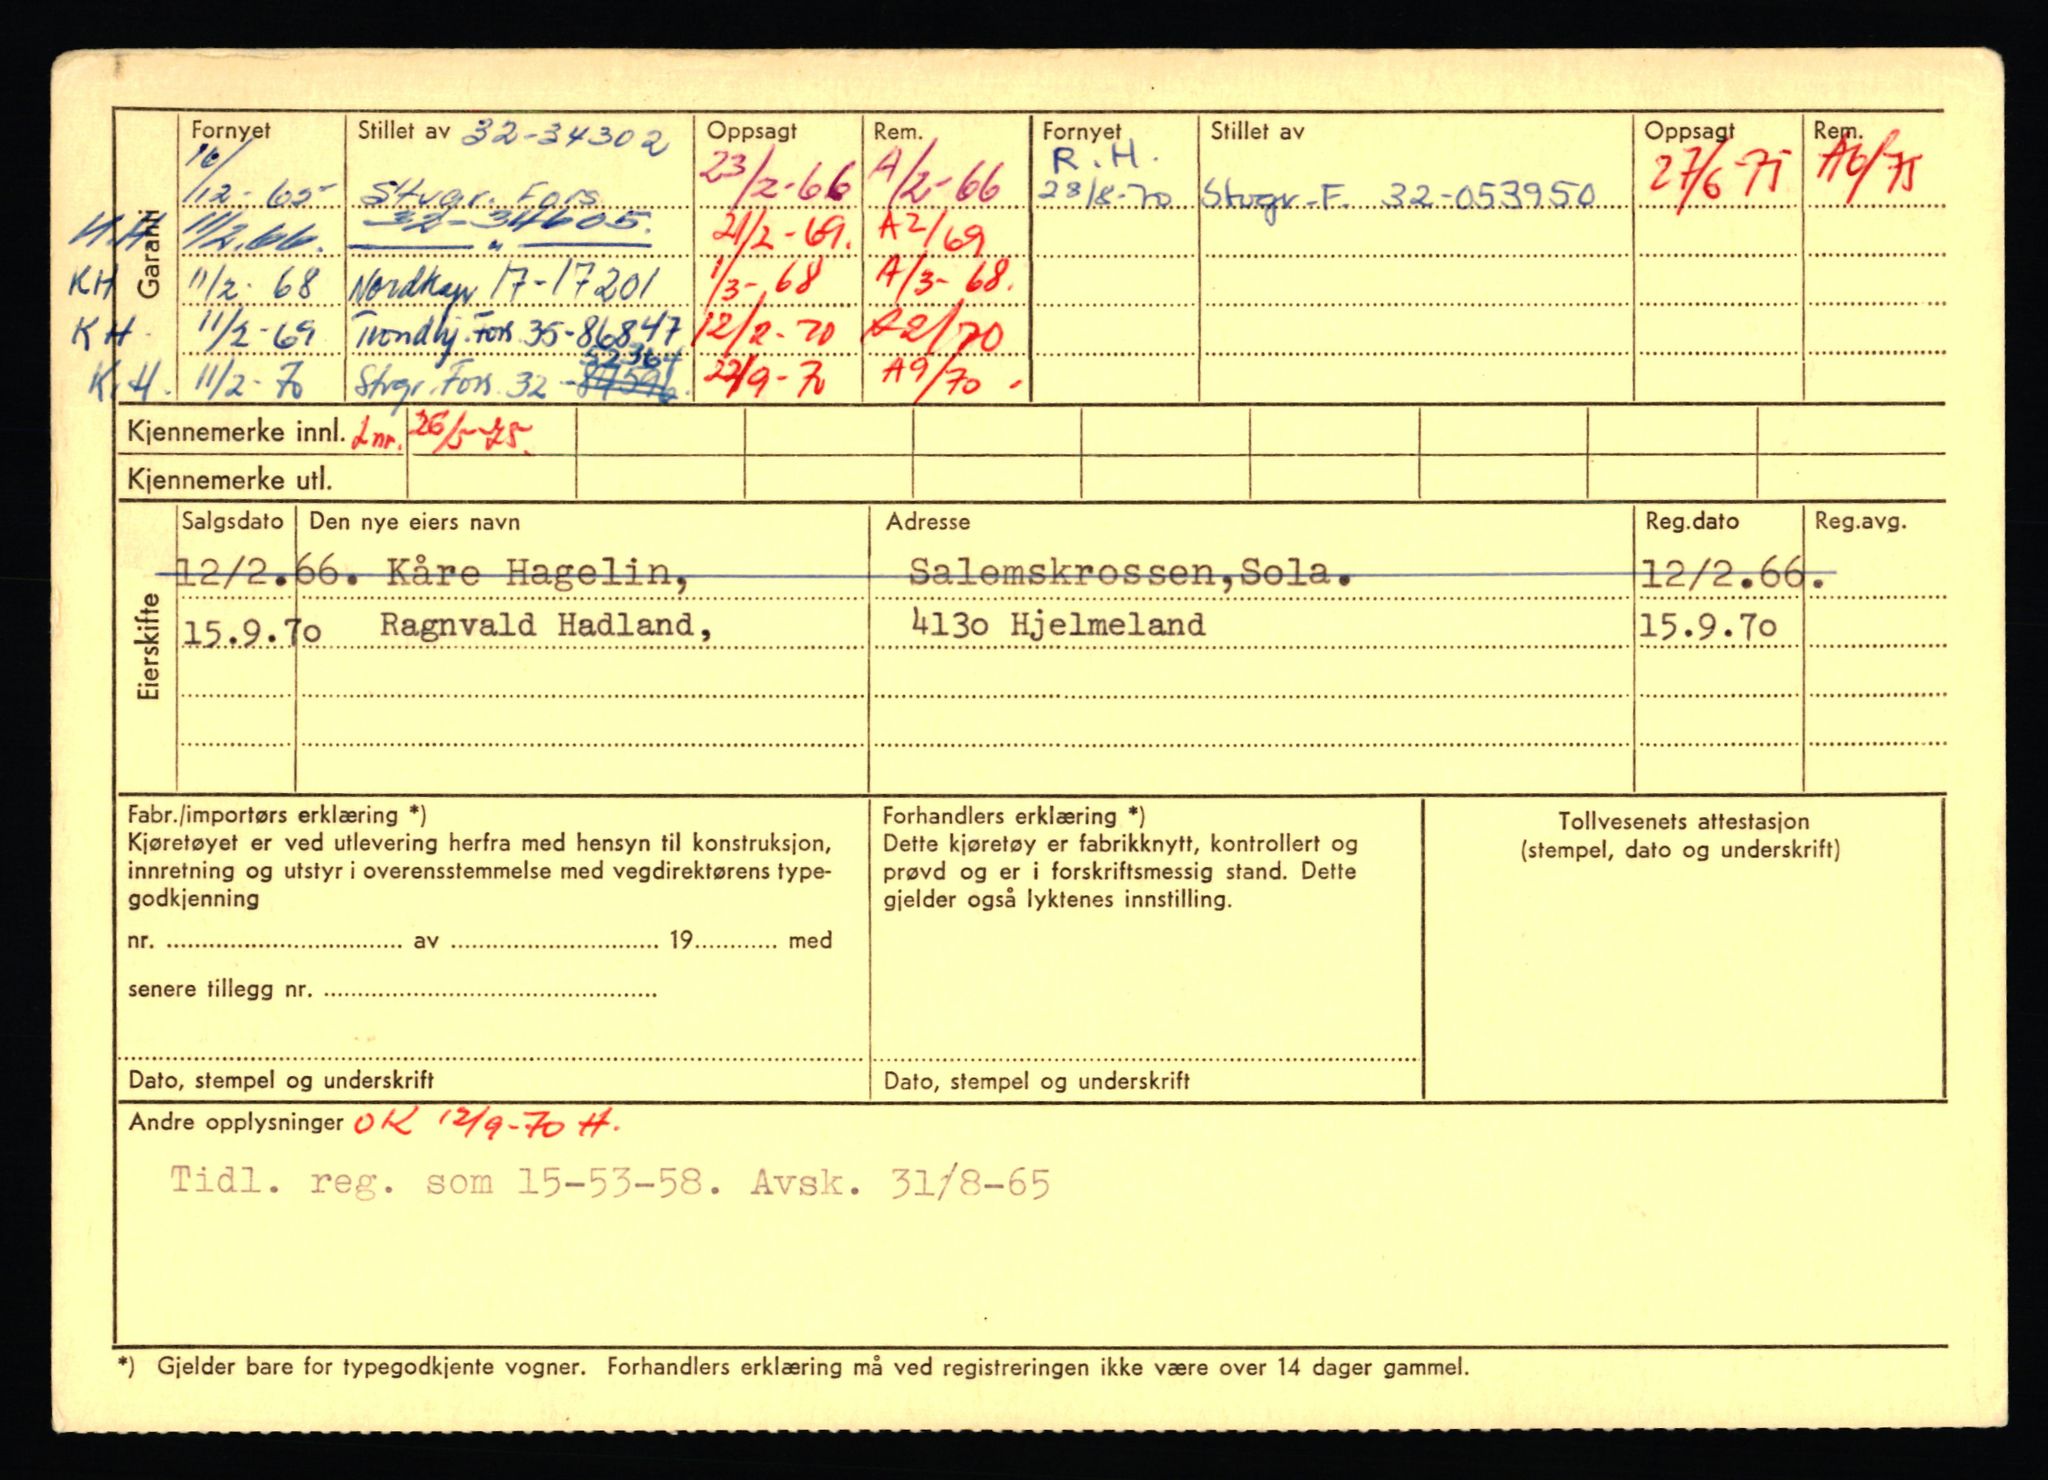 Garanti
Fornyet Stillet av 32-34302 Oppsagt Rem. Fornyet Stillet av Oppsagt Rem.
16/12-65 Stvgr. Fors. 23/2-66 A/2-66 R.H. 28/8-70 Stvgr.-F. 32-053950 27/6-75 A6/75
H.H 11/2.66. 32-34605. " 21/2-69. A2/69
KH 11/2-68 Nordkap 17-17201 1/3-68 A/3-68.
KH. 11/2-69 Trondhj. Fors. 35-86847 12/2-70 A2/70
K.H. 11/2-70 Stvgr. Fors. 32-52364 22/9-70 A9/70.
Kjennemerke innl. Lnr. 26/5-75.
Kjennemerke utl.
Eierskifte
Salgsdato Den nye eiers navn Adresse Reg.dato Reg.avg.
12/2.66. Kåre Hagelin, Salemskrossen,Sola. 12/2.66.
15.9.7o Ragnvald Hadland, 413o Hjelmeland 15.9.7o
Fabr./importørs erklæring *)
Kjøretøyet er ved utlevering herfra med hensyn til konstruksjon,
innretning og utstyr i overensstemmelse med vegdirektørens type-
godkjenning
nr. .......... av .......... 19.......... med
senere tillegg nr. ..........
Dato, stempel og underskrift
Forhandlers erklæring *)
Dette kjøretøy er fabrikknytt, kontrollert og
prøvd og er i forskriftsmessig stand. Dette
gjelder også lyktenes innstilling.
Dato, stempel og underskrift
Tollvesenets attestasjon
(stempel, dato og underskrift)
Andre opplysninger OK 12/9-70 H.
Tidl. reg. som 15-53-58. Avsk. 31/8-65
*) Gjelder bare for typegodkjente vogner. Forhandlers erklæring må ved registreringen ikke være over 14 dager gammel.